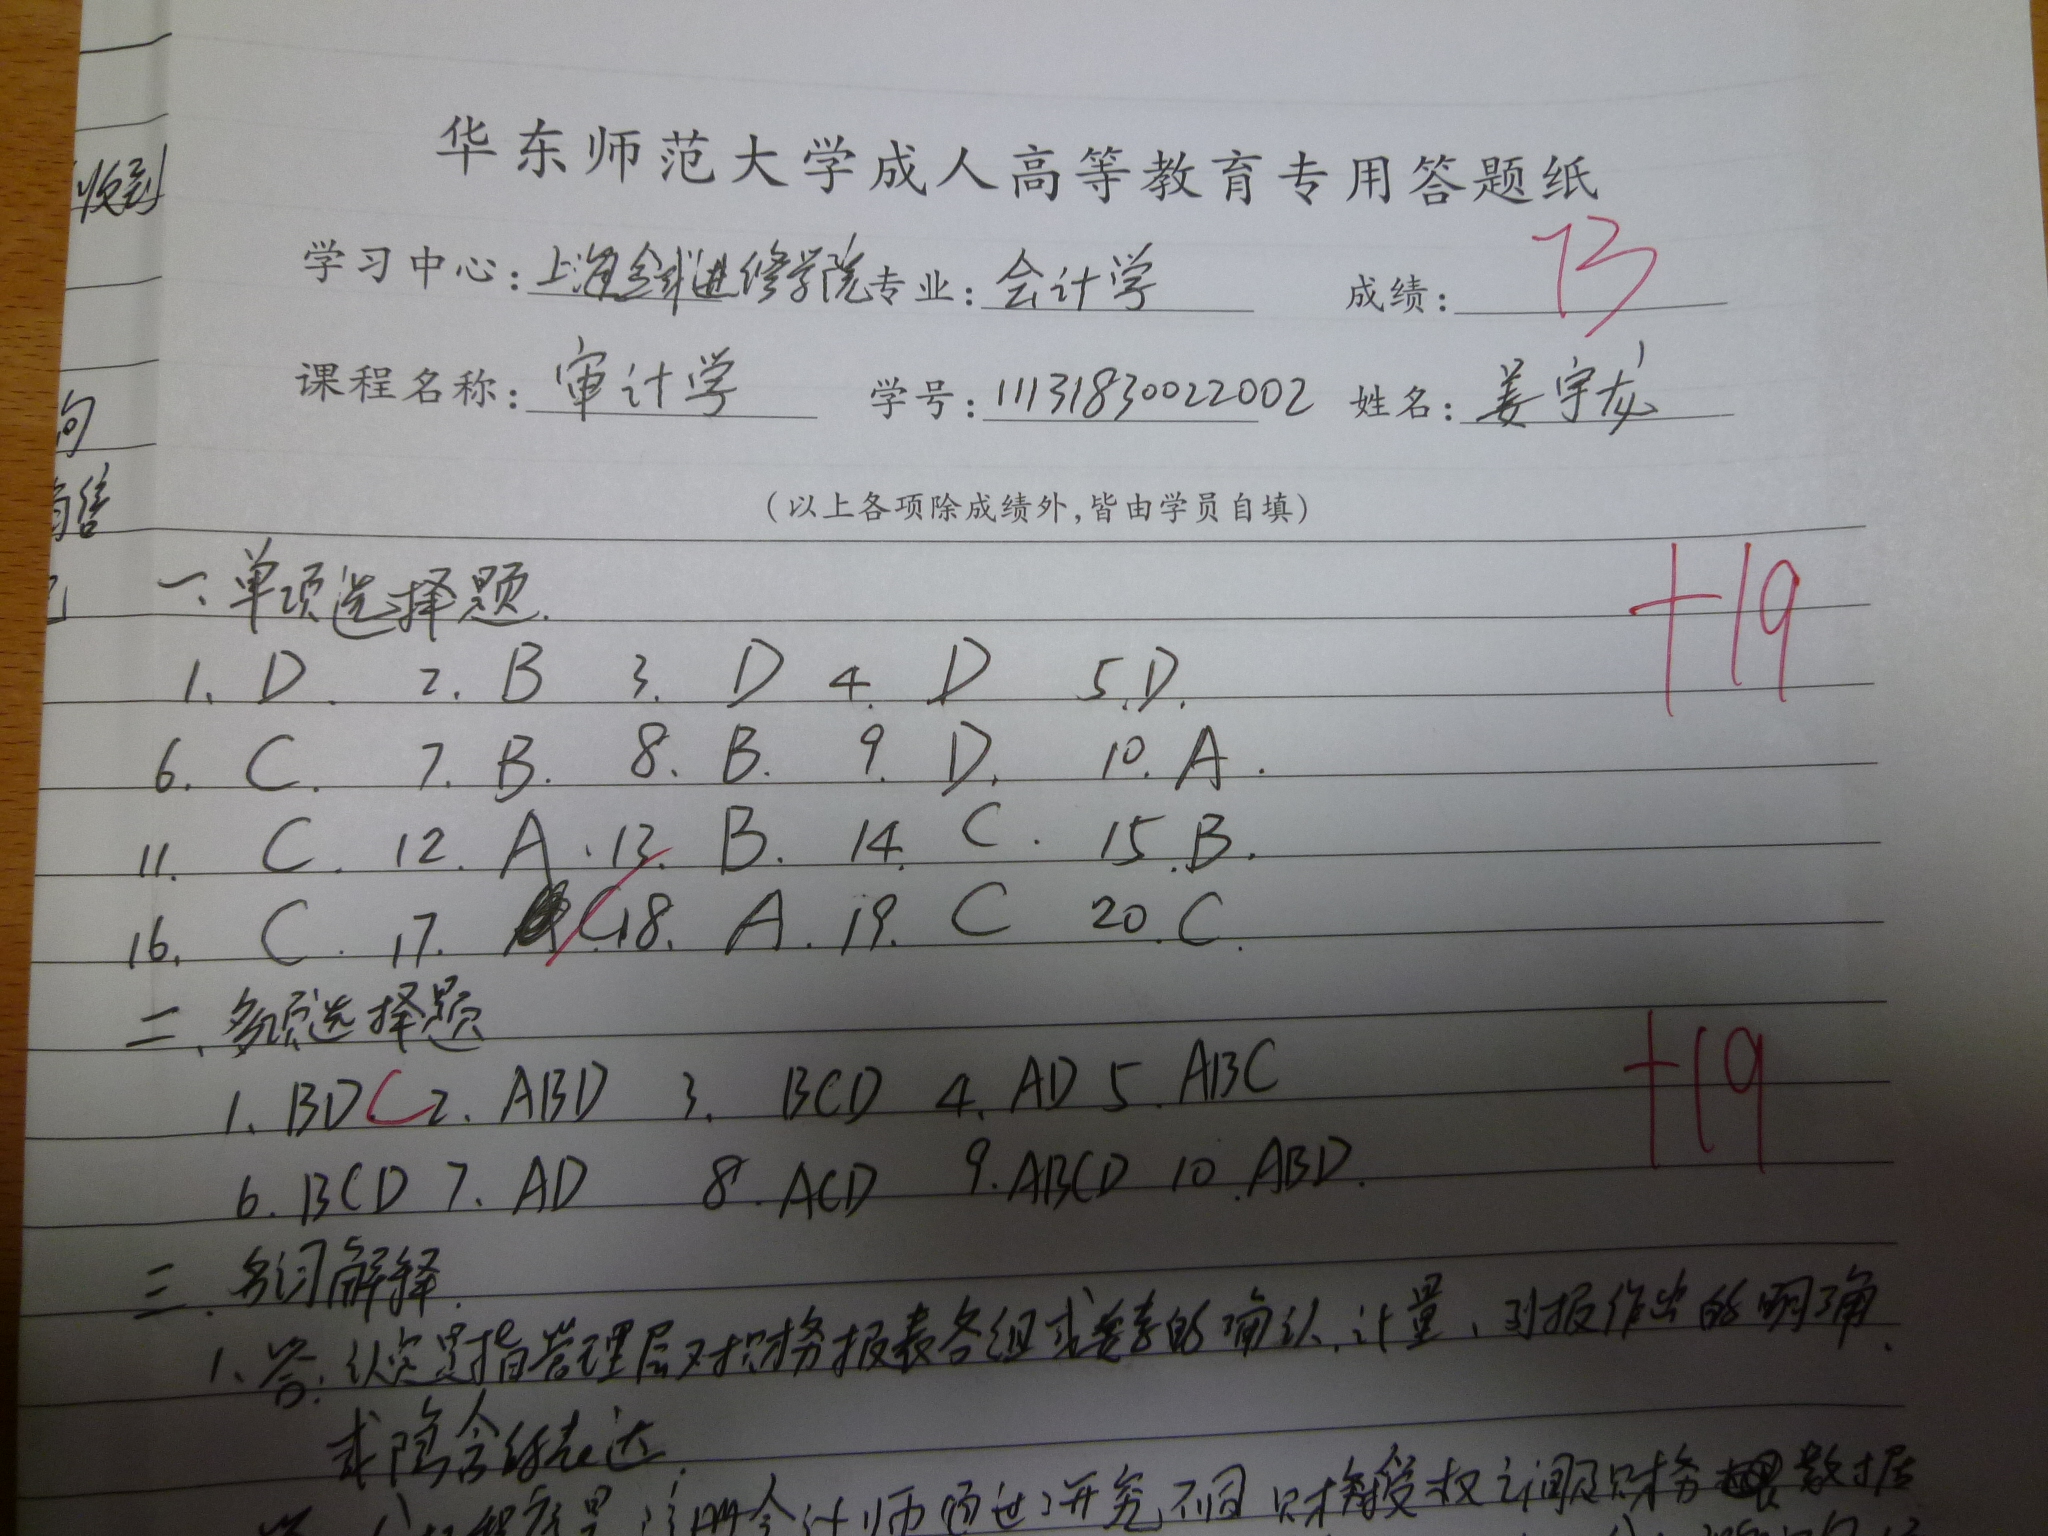 华东师范大学成人高等教育专用答题纸
学习中心:上海金戈进修学院 专业:会计学 成绩:73
课程名称:审计学 学号:11131830022002 姓名:姜宇龙
(以上各项除成绩外,皆由学员自填)
收到
句
销售
一、单项选择题. +19
1. D. 2. B 3. D 4. D 5. D.
6. C. 7. B. 8. B. 9. D. 10. A.
11. C. 12. A. 13. B. 14. C. 15. B.
16. C. 17. C. 18. A. 19. C 20. C.
二、多项选择题 +19
1. BDC 2. ABD 3. BCD 4. AD 5. ABC
6. BCD 7. AD 8. ACD 9. ABCD 10. ABD.
三、名词解释.
1、答:认定是指管理层对财务报表各组成要素的确认、计量、列报作出的明确
或隐含的表达.
注册会计师通过研究不同财务 之间及财务 数据